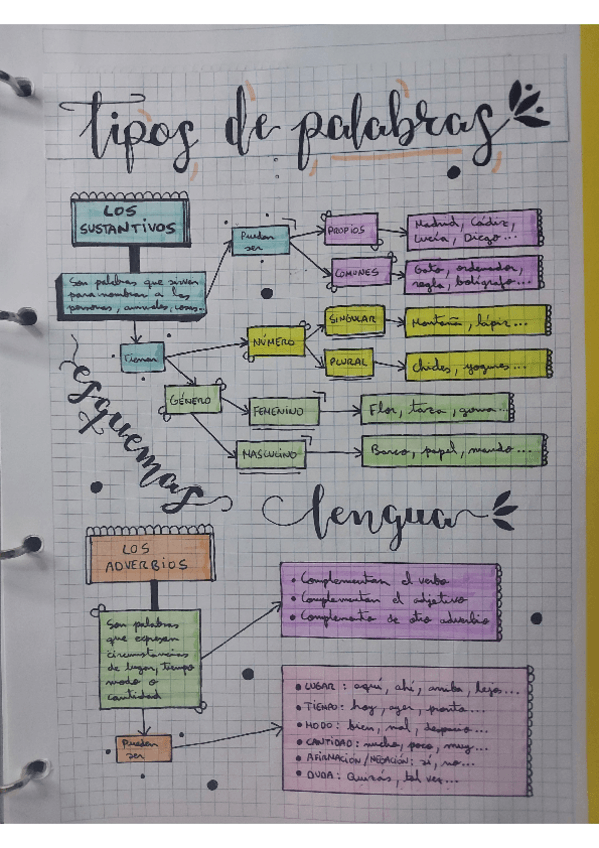 tipos de palabras
LOS
SUSTANTIVOS
Son palabras que sirven
para nombrar a las
personas, animales, cosas...
Pueden
ser
PROPIOS
Madrid, Cádiz,
Lucía, Diego...
COMUNES
Gato, ordenador,
regla, bolígrafo...
Tienen
NÚMERO
SINGULAR
Montaña, lápiz...
PLURAL
Chicles, yogures...
GÉNERO
FEMENINO
Flor, taza, goma...
MASCULINO
Barco, papel, mando...
esquemas
lengua
LOS
ADVERBIOS
Son palabras
que expresan
circunstancias
de lugar, tiempo
modo o
cantidad
• Complementan el verbo
• Complementan el adjetivo
• Complemento de otro adverbio
Pueden
ser
• LUGAR: aquí, ahí, arriba, lejos...
• TIEMPO: hoy, ayer, pronto...
• MODO: bien, mal, despacio...
• CANTIDAD: mucho, poco, muy...
• AFIRMACIÓN/NEGACIÓN: sí, no...
• DUDA: Quizás, tal vez...